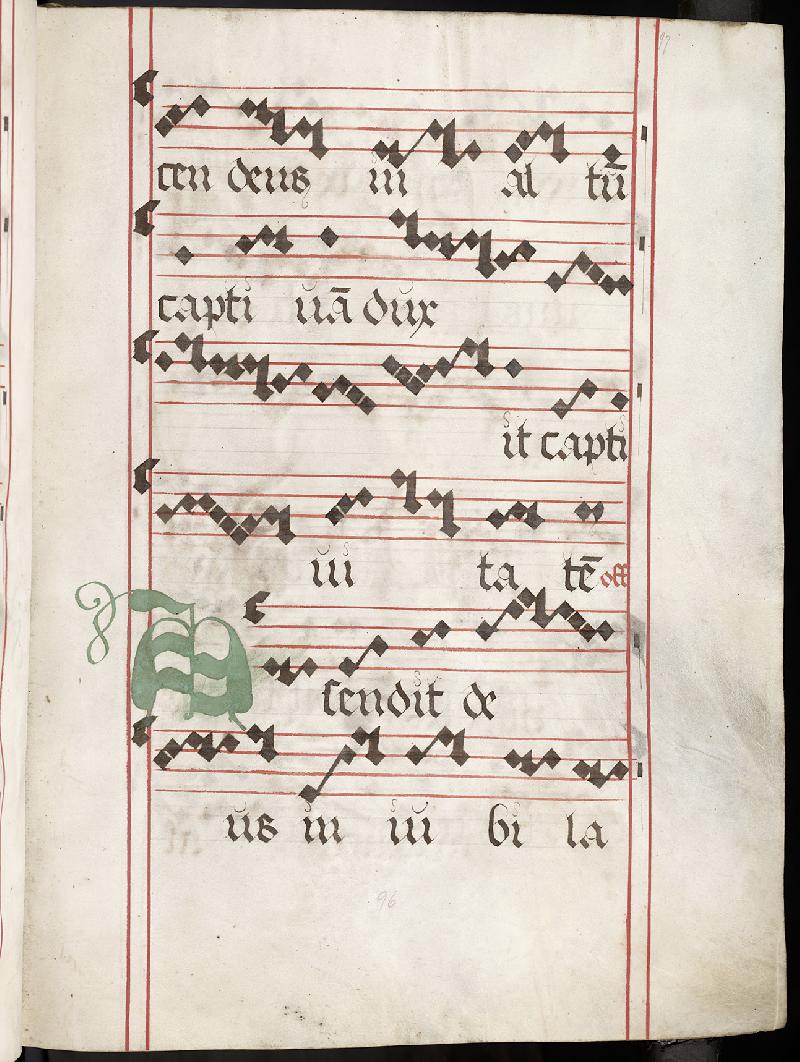 97
cen deus in al tū
capti uā dux
it capti
ui ta tē off
A scendit de
us in iu bi la
96